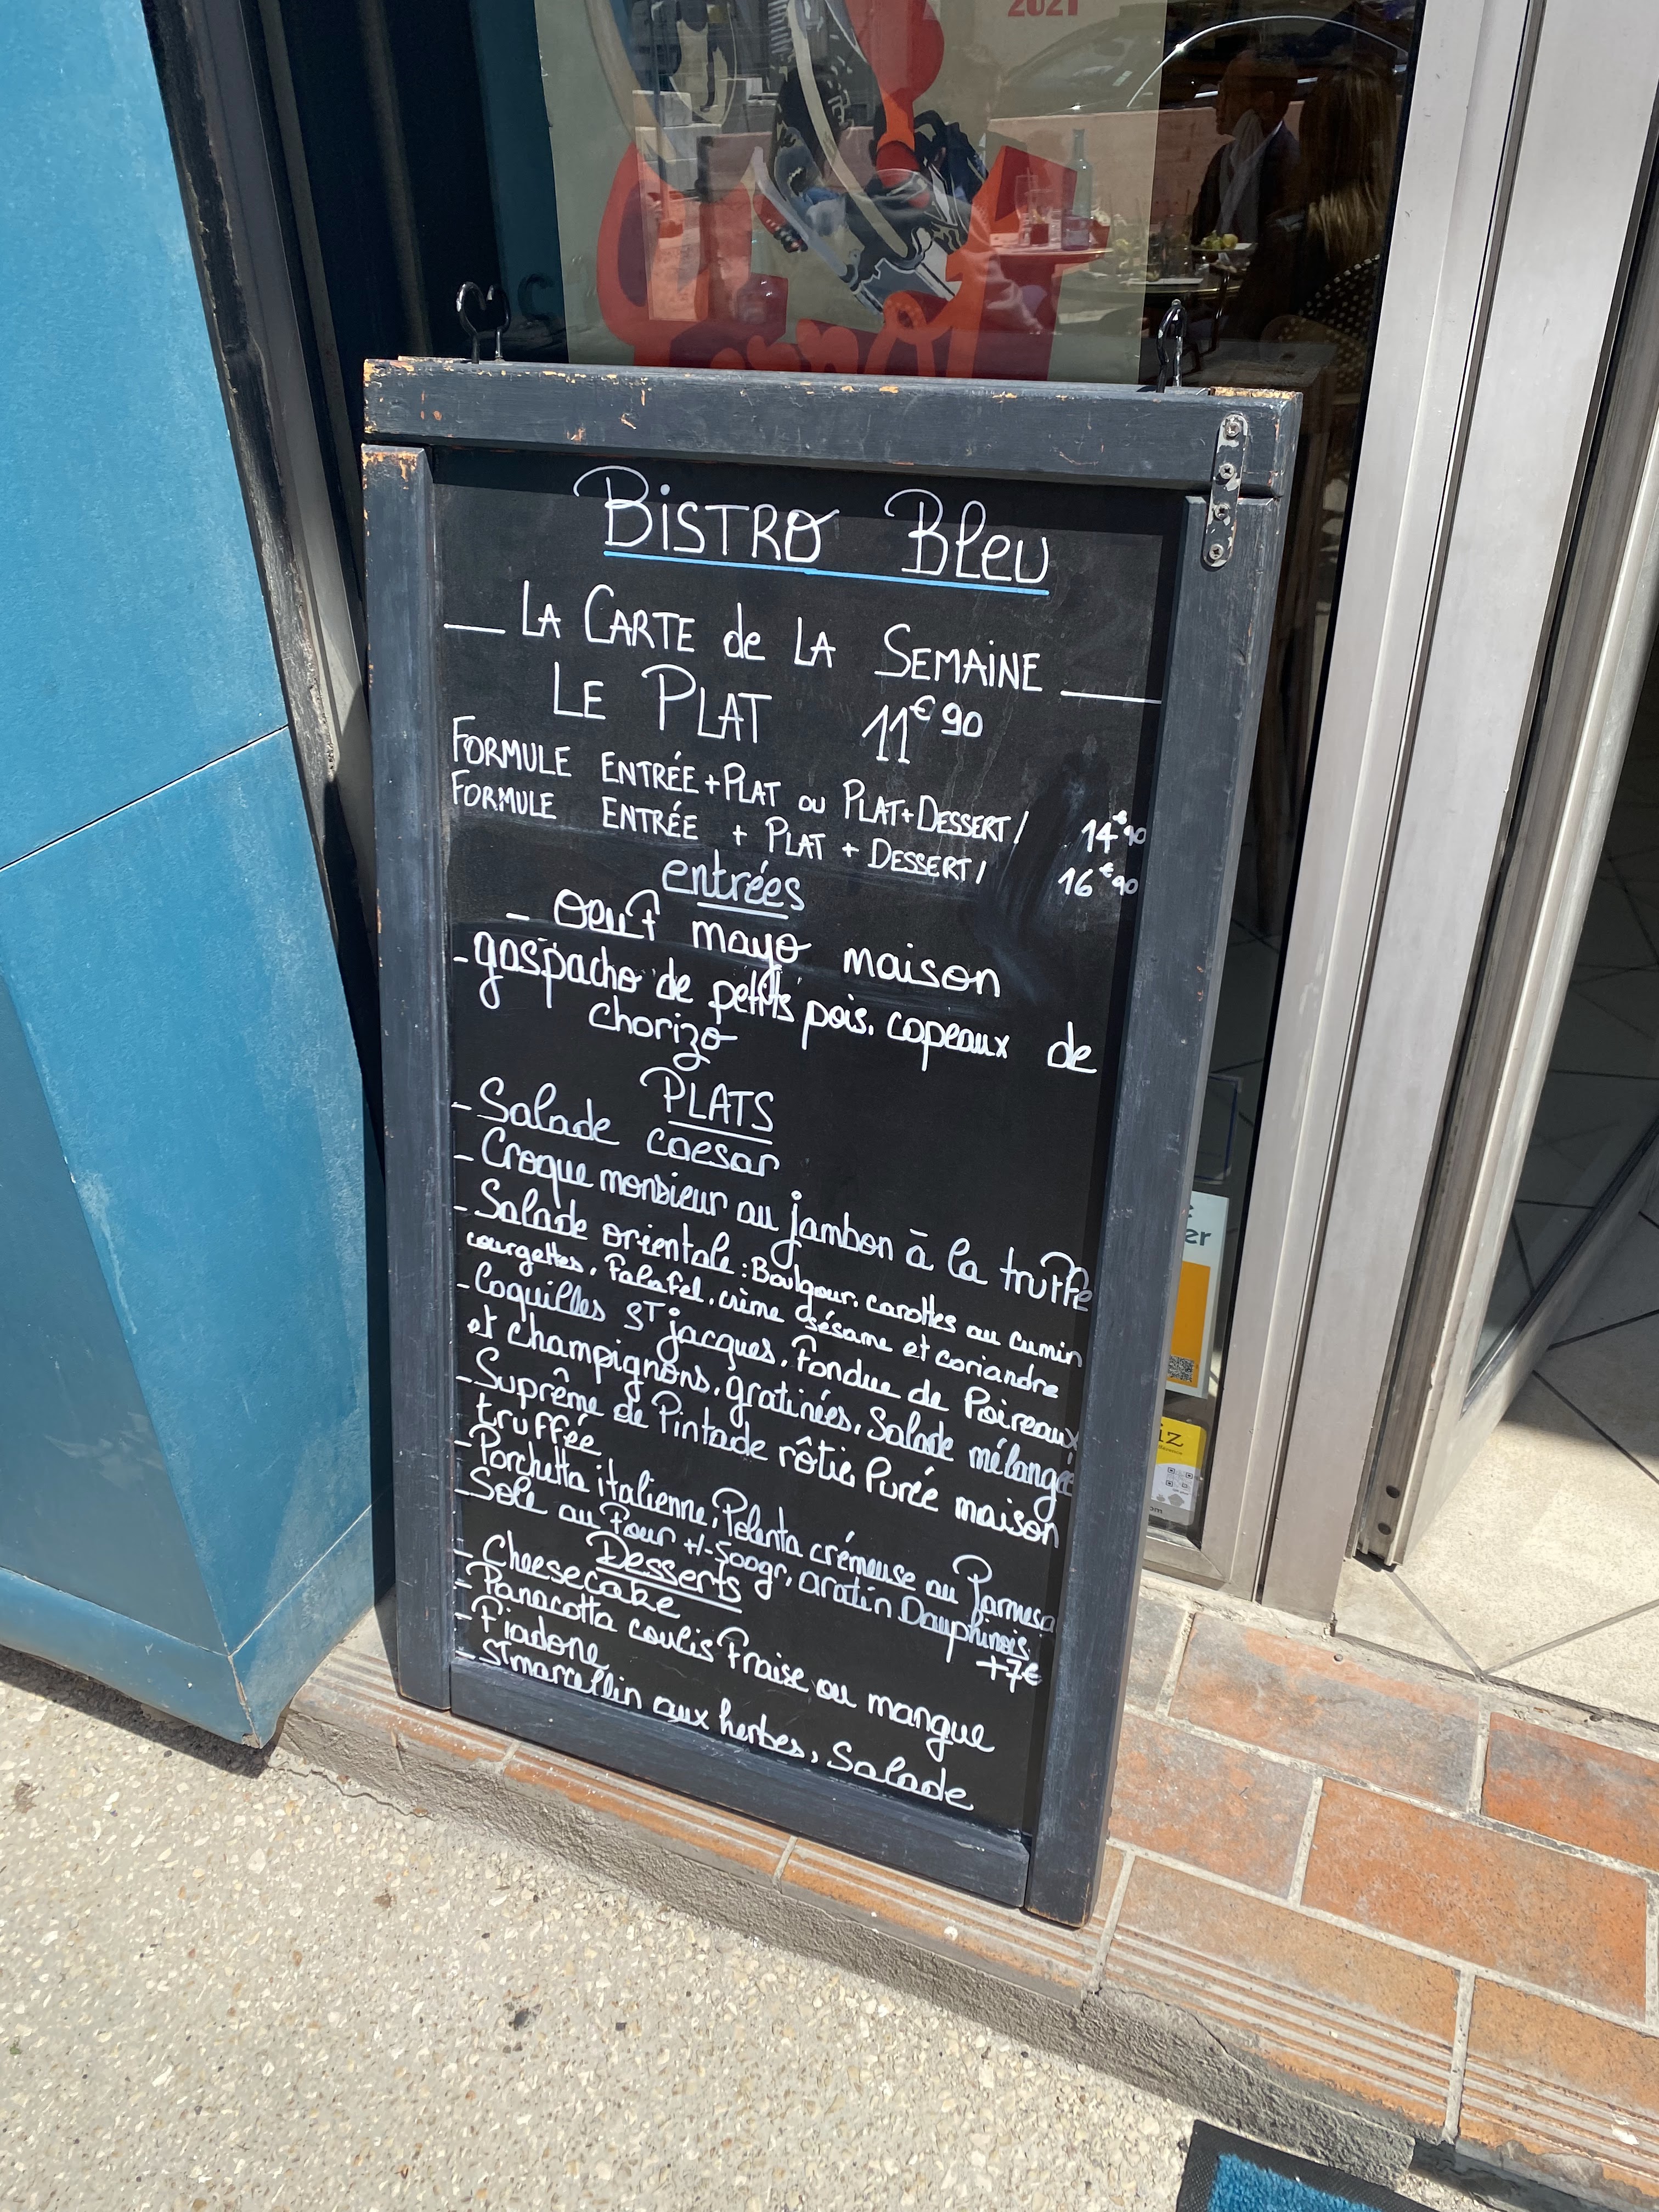 2021
BISTRO BLEU
LA CARTE de LA SEMAINE
LE PLAT 11€90
FORMULE ENTRÉE+PLAT OU PLAT+DESSERT/ 14€90
FORMULE ENTRÉE + PLAT + DESSERT/ 16€90
entrées
- Oeuf mayo maison
- gaspacho de petits pois, copeaux de
chorizo
PLATS
- Salade caesar
- Croque monsieur au jambon à la truffe
- Salade orientale : Boulgour, carottes au cumin
courgettes, Falafel, crème sésame et coriandre
- Coquilles ST jacques, Fondue de Poireaux
et champignons, gratinées, Salade mélangée
- Suprême de Pintade rôtie, Purée maison
truffée
- Porchetta italienne, Polenta crémeuse au Parmesa
- Sole au Four +/-500gr, Gratin Dauphinois
+7€
Desserts
- Cheesecake
- Panacotta coulis Fraise ou mangue
- Fiadone
- ST marcellin aux herbes, Salade
er
iz
om